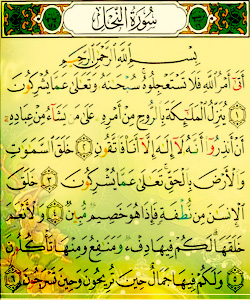 سُورَةُ النَّحْلِ
بِسْمِ اللَّهِ الرَّحْمَٰنِ الرَّحِيمِ
أَتَىٰٓ أَمْرُ ٱللَّهِ فَلَا تَسْتَعْجِلُوهُ سُبْحَٰنَهُۥ وَتَعَٰلَىٰ عَمَّا يُشْرِكُونَ
١ يُنَزِّلُ ٱلْمَلَٰٓئِكَةَ بِٱلرُّوحِ مِنْ أَمْرِهِۦ عَلَىٰ مَن يَشَآءُ مِنْ عِبَادِهِۦٓ
أَنْ أَنذِرُوٓا۟ أَنَّهُۥ لَآ إِلَٰهَ إِلَّآ أَنَا۠ فَٱتَّقُونِ ٢ خَلَقَ ٱلسَّمَٰوَٰتِ
وَٱلْأَرْضَ بِٱلْحَقِّ تَعَٰلَىٰ عَمَّا يُشْرِكُونَ ٣ خَلَقَ
ٱلْإِنسَٰنَ مِن نُّطْفَةٍ فَإِذَا هُوَ خَصِيمٌ مُّبِينٌ ٤ وَٱلْأَنْعَٰمَ
خَلَقَهَا لَكُمْ فِيهَا دِفْءٌ وَمَنَٰفِعُ وَمِنْهَا تَأْكُلُونَ
٥ وَلَكُمْ فِيهَا جَمَالٌ حِينَ تُرِيحُونَ وَحِينَ تَسْرَحُونَ ٦